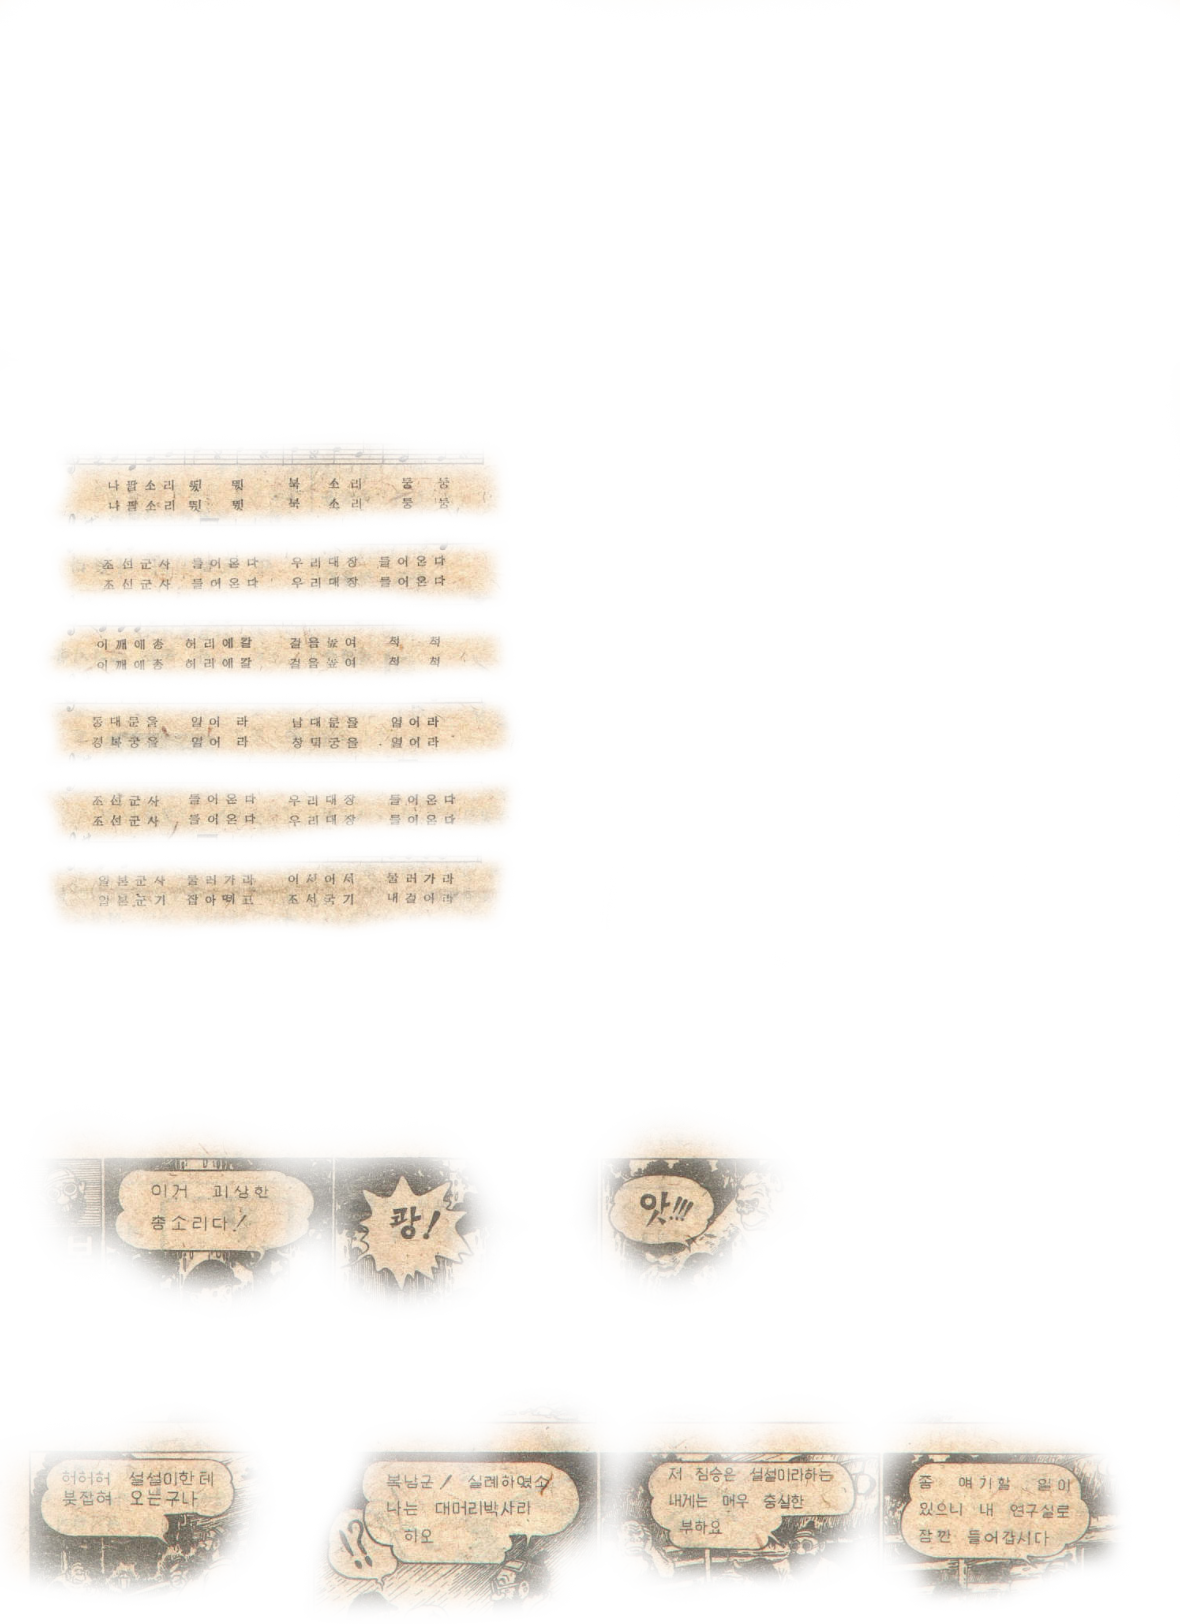 나팔소리 뛋 뗏 북 소리 둥 둥
나팔소리 뛋 뗏 북 소리 둥 둥
조선군사 들어온다 우리대장 들어온다
조선군사 들어온다 우리대장 들어온다
어깨에총 허리에칼 걸음높여 척 척
어깨에총 허리에칼 걸음높여 척 척
동대문을 열어 라 남대문을 열어라
경복궁을 열어 라 창덕궁을 열어라
조선군사 들어온다 우리대장 들어온다
조선군사 들어온다 우리대장 들어온다
일본군사 물러가라 어서어서 물러가라
일본군기 잡아떼고 조선국기 내걸어라
이거 괴상한
총소리다!
쾅!
앗!!!
허허허 설설이한테
붓잡혀 오는구나
복남군! 실례하였소
나는 대머리박사리
하오
!?
저 짐승은 설설이라하는
내게는 매우 충실한
부하요
좀 얘기할 일이
있으니 내 연구실로
잠깐 들어갑시다